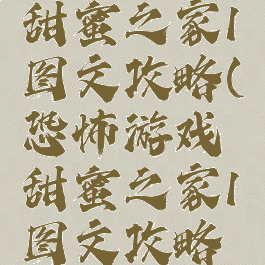 甜蜜之家|
图文攻略(
恐怖游戏
甜蜜之家|
图文攻略